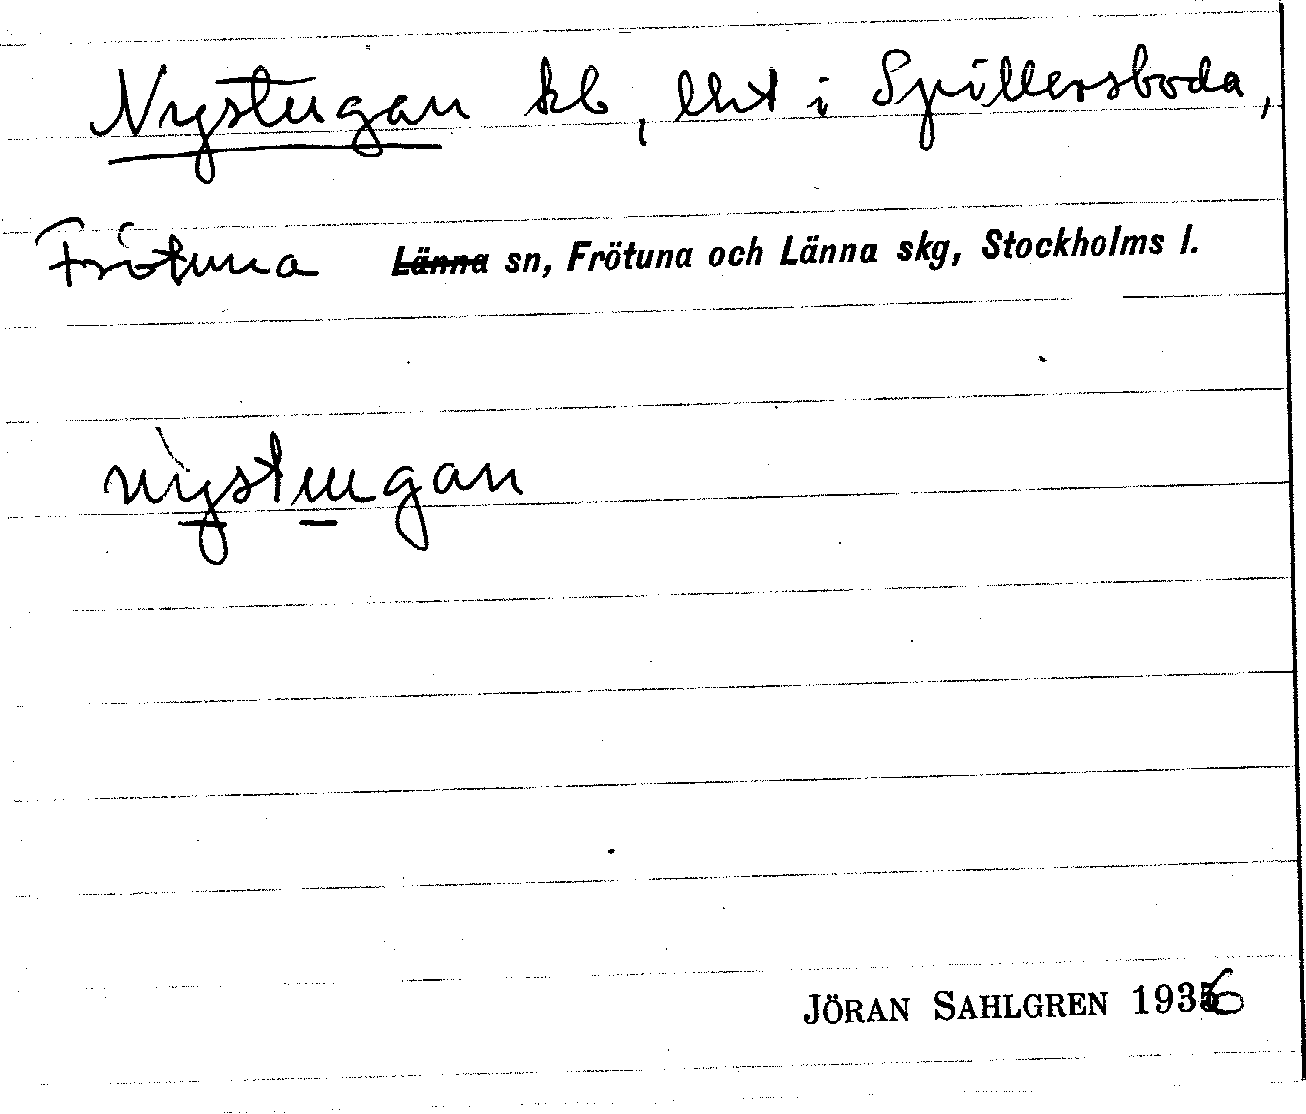 Nystugan kb, lht i Spillersboda,
Frötuna Länna sn, Frötuna och Länna skg, Stockholms l.
nỳstugan
JÖRAN SAHLGREN 1936